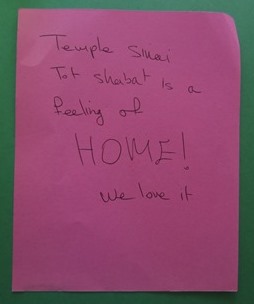 Temple Sinai
Tot shabat is a
feeling of
HOME!
We love it